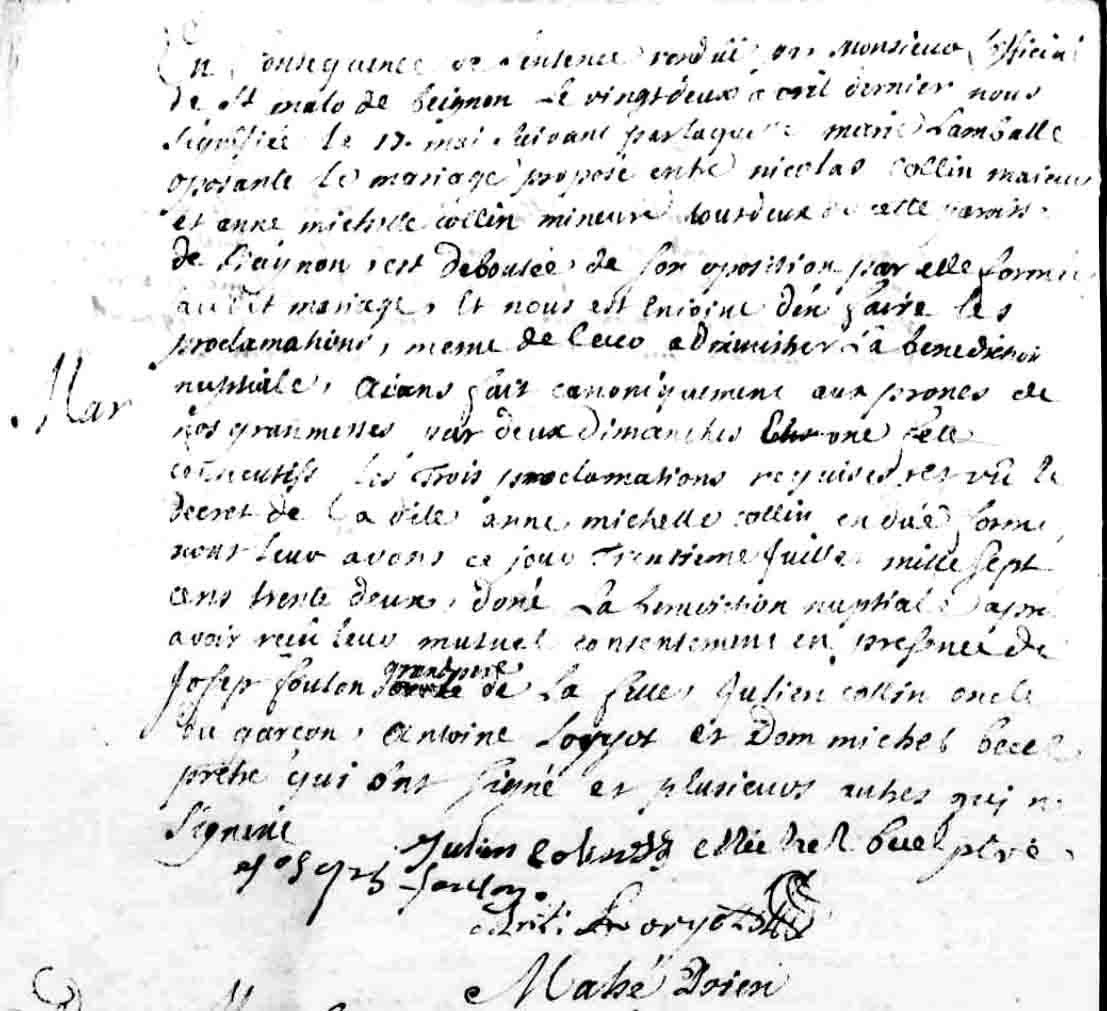 En Consequence de sentence renduë par Monsieur l'official
de St malo de beignon Le vingtdeux avril dernier nous
signifiée le 17. mai suivant par laquelle marie Lamballe
oposante le mariage proposé entre nicolas collin majeur
et anne michelle collin mineure tous deux de cette paroisse
de est deboutée de son oposition par elle formée
audit mariage, Et nous est enjoint d'en faire les
proclamations, meme de leur administrer La benediction
nuptiale, aiant fait canoniquement aux prones de
nos granmesses par deux dimanches et une fête
consecutifs les Trois proclamations requises, et vû le
decret de La dite anne michelle collin en düe forme
nous leur avons ce jour Trentieme Juillet mille sept
cens trente deux, doné La benediction nuptiale apres
avoir reçu leur mutuel consentement en presence de
Josep foulon grandpere de La fille, Julien collin oncle
du garçon, Antoine Loryot et Dom michel becel
prêtre qui ont signé et plusieurs autres qui ne
signent
Mar
Julien Michel becel ptre
Joseph foulon
Loryot
Mahé